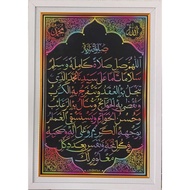 الله
محمد
اللهم صل صلاة كاملة وسلم
سلاما تاما على سيدنا محمد الذي
تنحل به العقد وتنفرج به الكرب
وتقضى به الحوائج وتنال به الرغائب
وحسن الخواتم ويستسقى الغمام
بوجهه الكريم وعلى آله وصحبه
في كل لمحة ونفس بعدد كل
معلوم لك